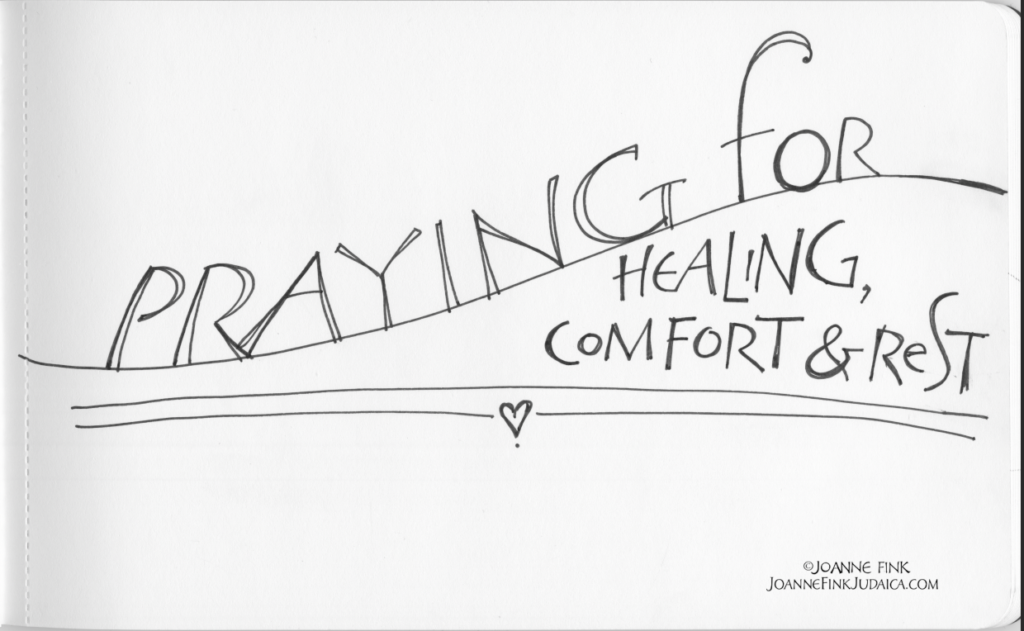 PRAYING for
HEALING,
COMFORT & REST
©JOANNE FINK
JOANNEFINKJUDAICA.COM